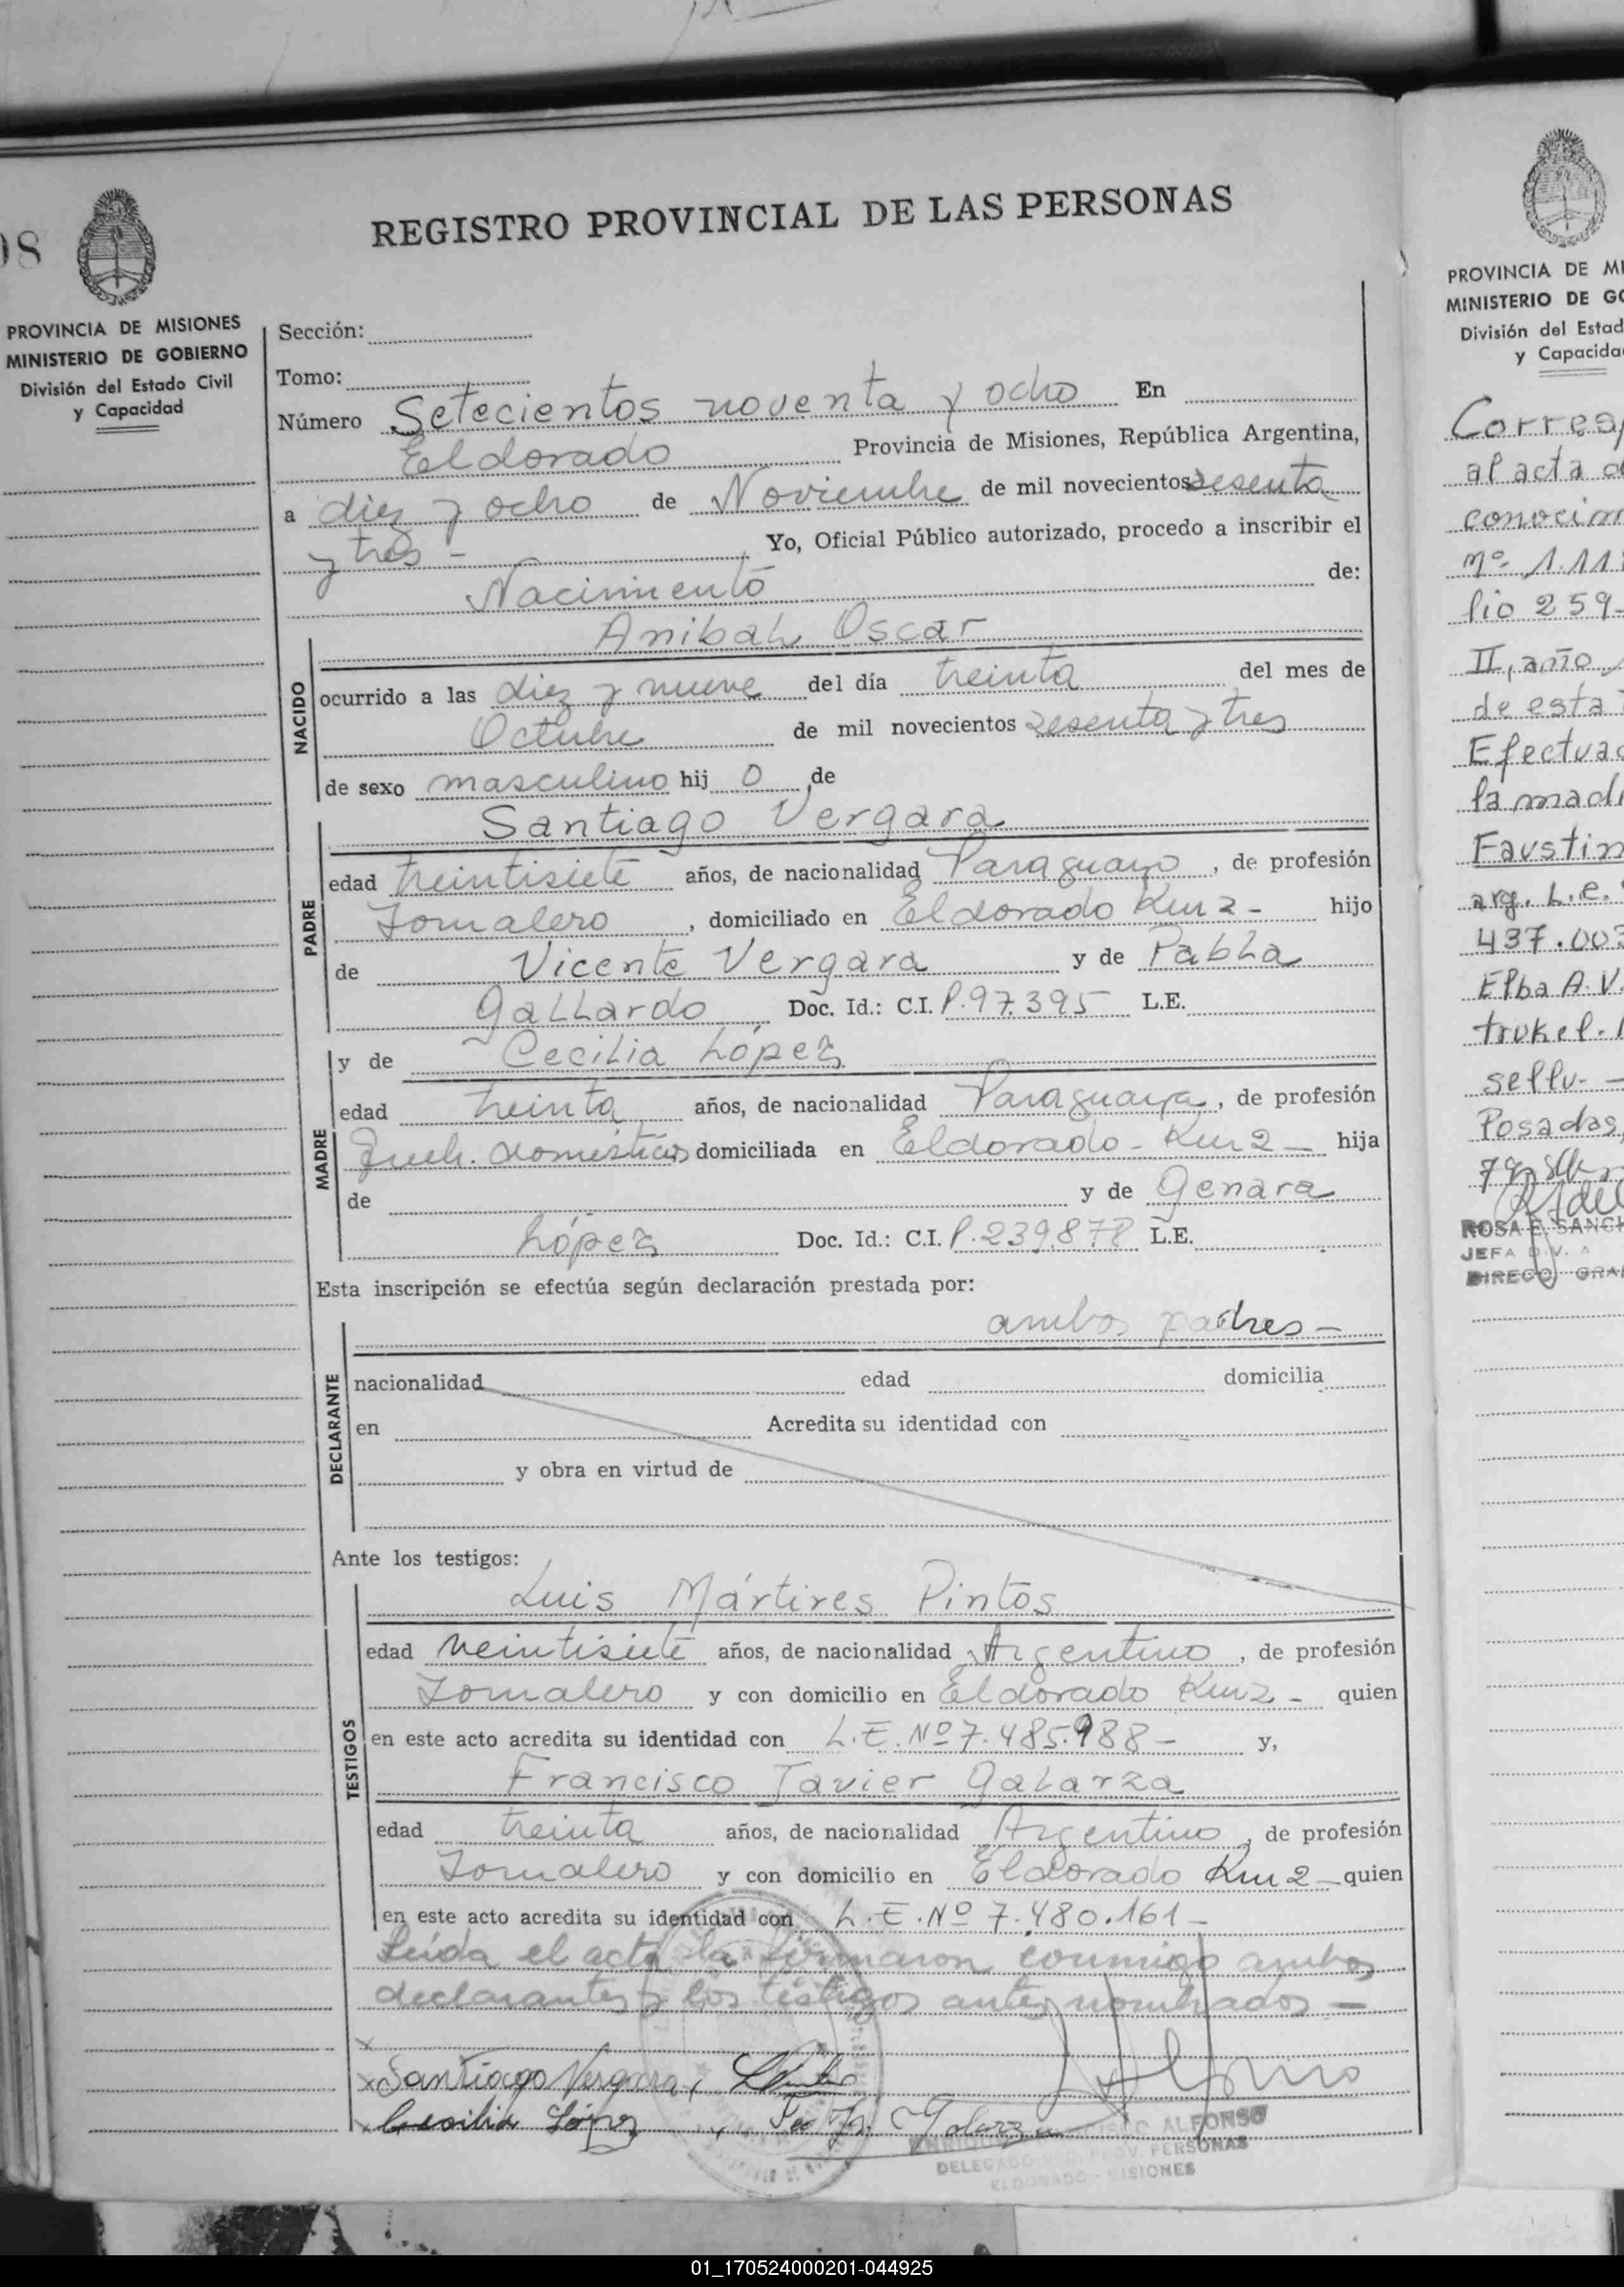 98
REGISTRO PROVINCIAL DE LAS PERSONAS
PROVINCIA DE MISIONES
MINISTERIO DE GOBIERNO
División del Estado Civil
y Capacidad
Sección:
Tomo:
Número Setecientos noventa y ocho En
Eldorado Provincia de Misiones, República Argentina,
a diez y ocho de Noviembre de mil novecientos sesenta
y tres - Yo, Oficial Público autorizado, procedo a inscribir el
Nacimiento de:
NACIDO
Anibal Oscar
ocurrido a las diez y nueve del día treinta del mes de
Octubre de mil novecientos sesenta y tres
de sexo masculino hij o de
PADRE
Santiago Vergara
edad treintisiete años, de nacionalidad Paraguayo, de profesión
Jornalero, domiciliado en Eldorado Km 2 - hijo
de Vicente Vergara y de Pabla
Gallardo Doc. Id.: C.I. P.97.395 L.E.
MADRE
y de Cecilia López
edad treinta años, de nacionalidad Paraguaya, de profesión
Queh. domésticos domiciliada en Eldorado - Km 2 - hija
de y de Genara
López Doc. Id.: C.I. P.239.878 L.E.
Esta inscripción se efectúa según declaración prestada por:
DECLARANTE
ambos padres -
nacionalidad edad domicilia
en Acredita su identidad con
y obra en virtud de
Ante los testigos:
TESTIGOS
Luis Mártires Pintos
edad veintisiete años, de nacionalidad Argentino, de profesión
Jornalero y con domicilio en Eldorado Km 2 - quien
en este acto acredita su identidad con L.E. Nº 7.485.988 - y,
Francisco Javier Galarza
edad treinta años, de nacionalidad Argentino, de profesión
Jornalero y con domicilio en Eldorado Km 2 - quien
en este acto acredita su identidad con L.E. Nº 7.480.161 -
Leída el acta la firmaron conmigo ambos
declarantes y los testigos antes nombrados -
x
x Santiago Vergara,
x Cecilia López, Fco Jr. Galarza
ALFONSO
DELEGADO PROV. PERSONAS
ELDORADO - MISIONES
PROVINCIA DE MI
MINISTERIO DE GO
División del Estad
y Capacida
Corres
al acta d
conocim
nº 1.11
lio 259-
II, año
de esta
Efectuad
la mad
Faustin
arg. L.E.
437.003
Elba A. V.
trokel-
sello -
Posadas,
ROSA E. SANCH
JEFA DIV. A
DIRECC GRAL
01_170524000201-044925